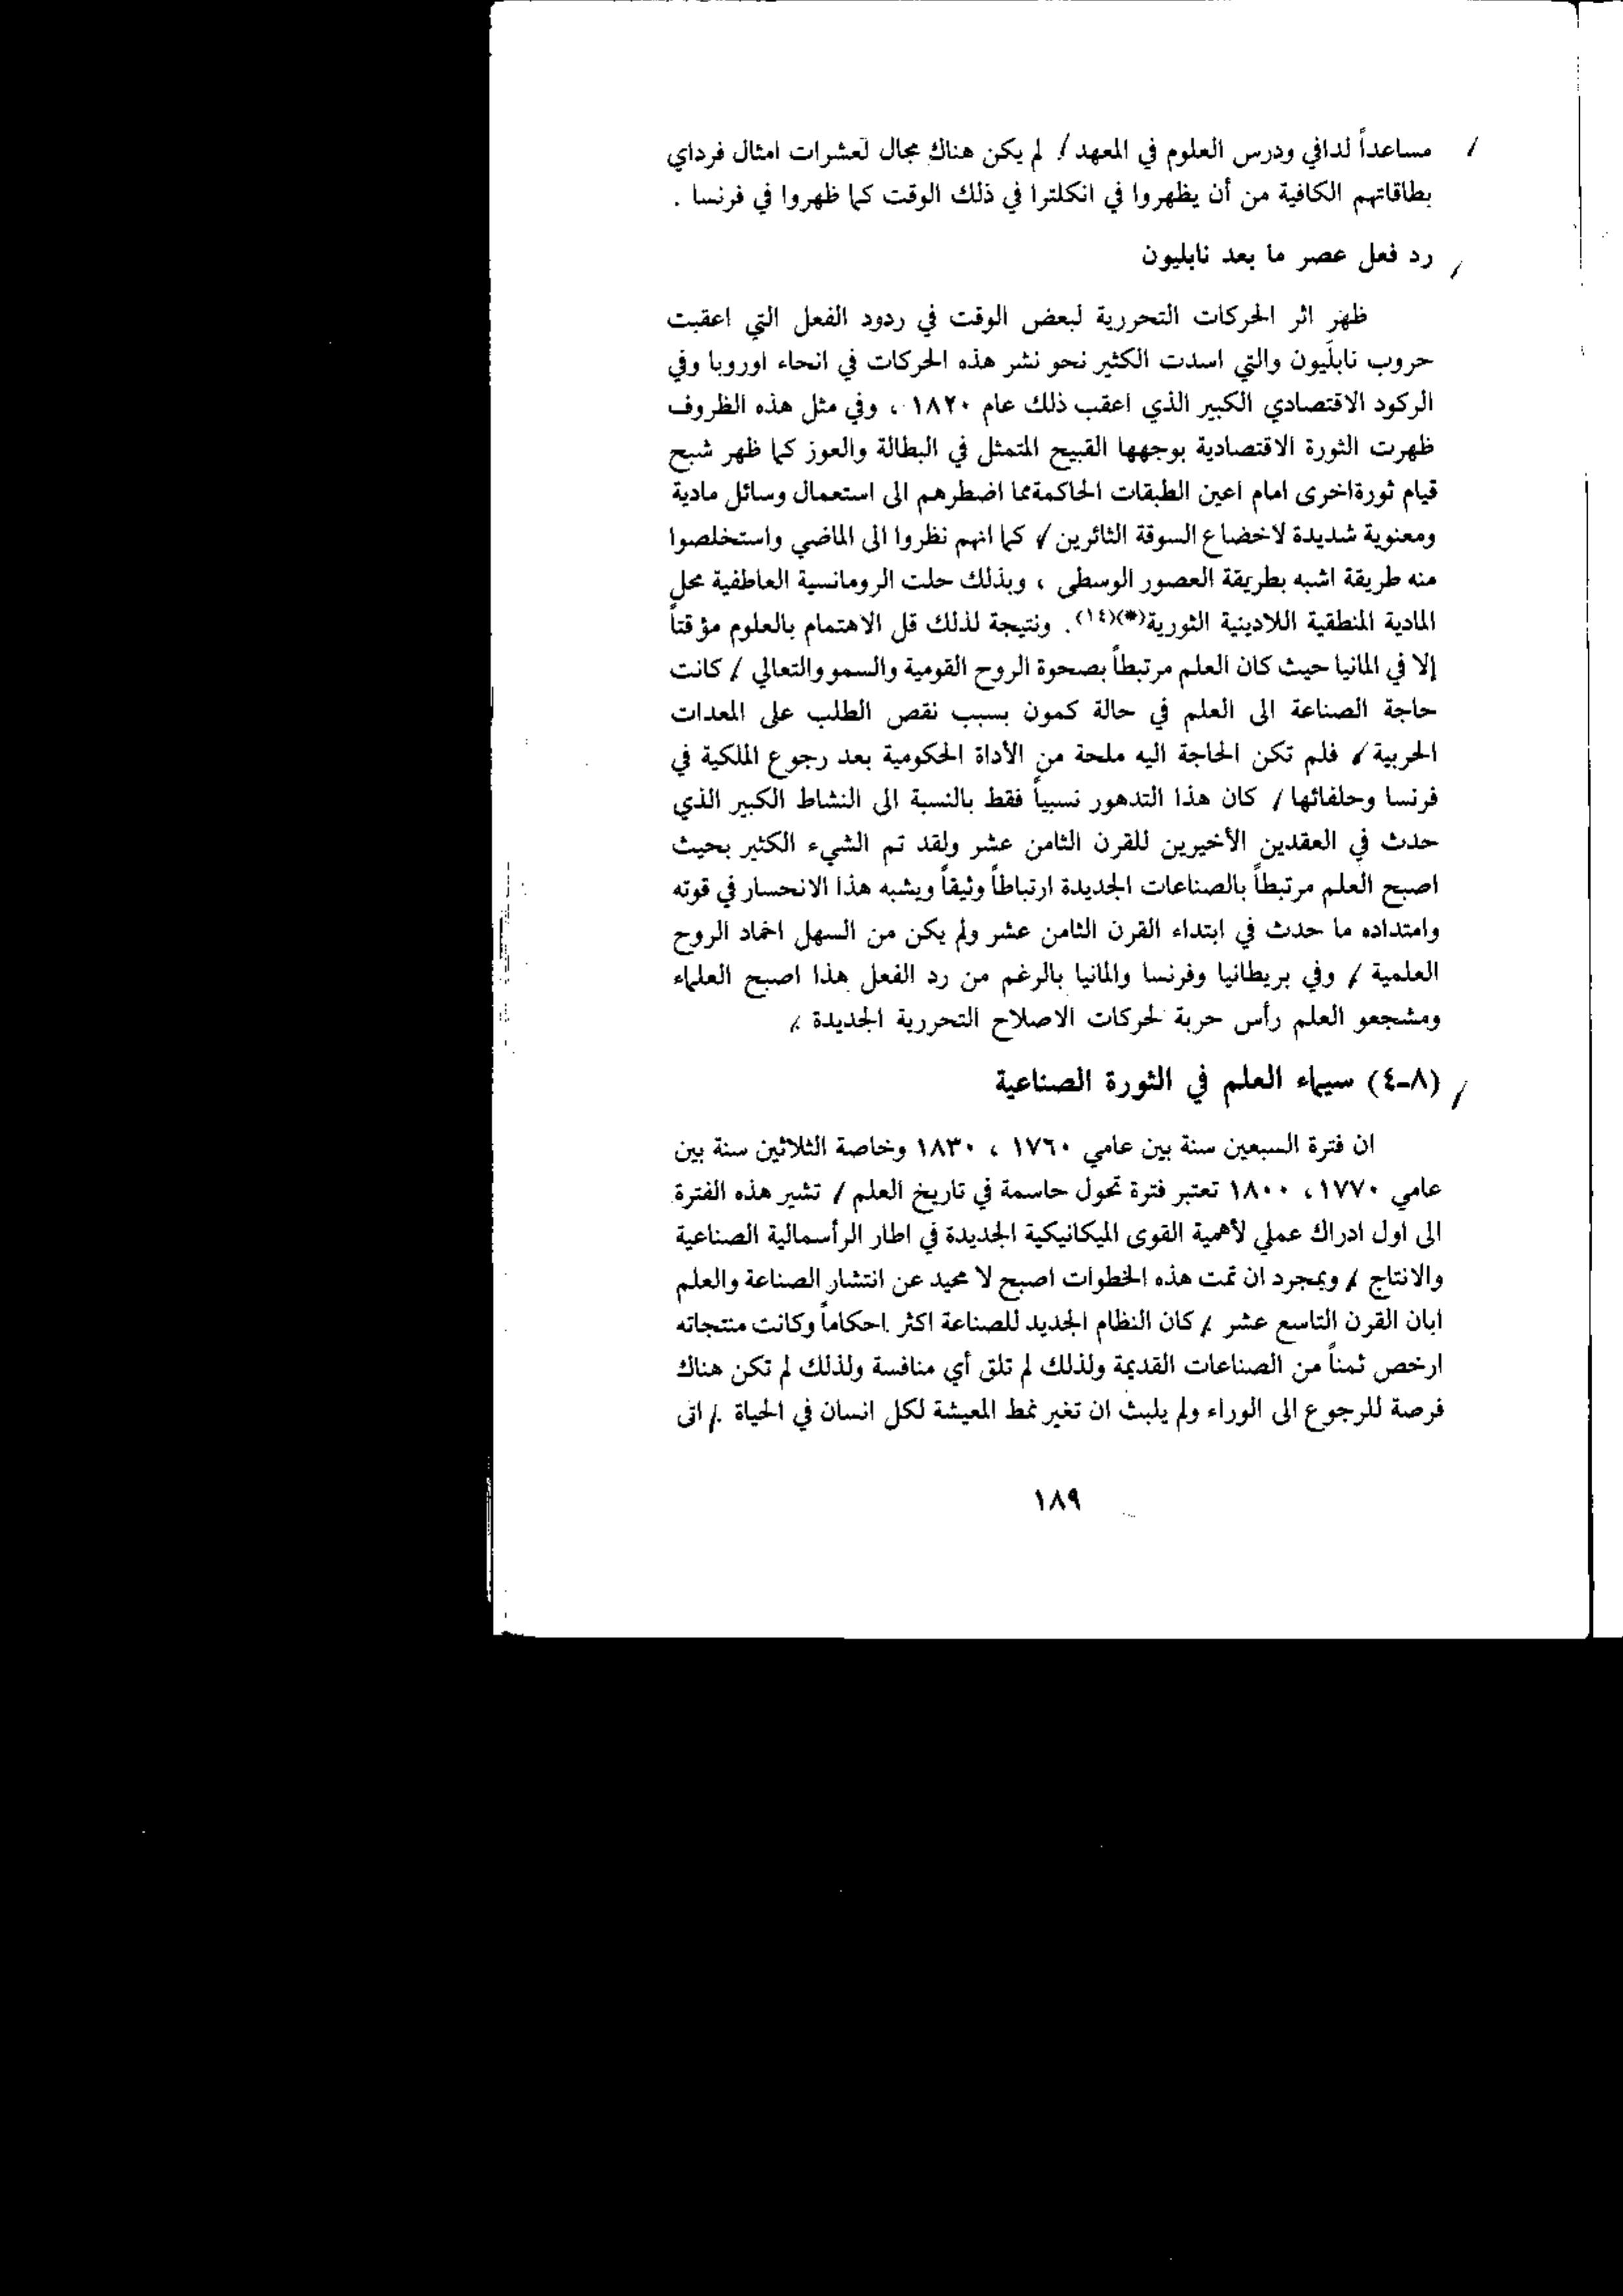 مساعداً لدافي ودرس العلوم في المعهد / . لم يكن هناك مجال لعشرات امثال فرداي
بطاقاتهم الكافية من أن يظهروا في انكلترا في ذلك الوقت كما ظهروا في فرنسا .
رد فعل عصر ما بعد نابليون
ظهر اثر الحركات التحررية لبعض الوقت في ردود الفعل التي اعقبت
حروب نابليون والتي اسدت الكثير نحو نشر هذه الحركات في انحاء اوروبا وفي
الركود الاقتصادي الكبير الذي اعقب ذلك عام ١٨٢٠ ، وفي مثل هذه الظروف
ظهرت الثورة الاقتصادية بوجهها القبيح المتمثل في البطالة والعوز كما ظهر شبح
قيام ثورة اخرى امام اعين الطبقات الحاكمة مما اضطرهم الى استعمال وسائل مادية
ومعنوية شديدة لاخضاع السوقة الثائرين / كما انهم نظروا الى الماضي واستخلصوا
منه طريقة اشبه بطريقة العصور الوسطى ، وبذلك حلت الرومانسية العاطفية محل
المادية المنطقية اللادينية الثورية(*)(١٤). ونتيجة لذلك قل الاهتمام بالعلوم مؤقتاً
إلا في المانيا حيث كان العلم مرتبطاً بصحوة الروح القومية والسمو والتعالي / كانت
حاجة الصناعة الى العلم في حالة كمون بسبب نقص الطلب على المعدات
الحربية / فلم تكن الحاجة اليه ملحة من الأداة الحكومية بعد رجوع الملكية في
فرنسا وحلفائها / كان هذا التدهور نسبياً فقط بالنسبة الى النشاط الكبير الذي
حدث في العقدين الأخيرين للقرن الثامن عشر ولقد تم الشيء الكثير بحيث
اصبح العلم مرتبطاً بالصناعات الجديدة ارتباطاً وثيقاً ويشبه هذا الانحسار في قوته
وامتداده ما حدث في ابتداء القرن الثامن عشر ولم يكن من السهل اخماد الروح
العلمية / وفي بريطانيا وفرنسا والمانيا بالرغم من رد الفعل هذا اصبح العلماء
ومشجعو العلم رأس حربة لحركات الاصلاح التحررية الجديدة /.
(٨-٤) سيماء العلم في الثورة الصناعية
ان فترة السبعين سنة بين عامي ١٧٦٠ ، ١٨٣٠ وخاصة الثلاثين سنة بين
عامي ١٧٧٠، ١٨٠٠ تعتبر فترة تحول حاسمة في تاريخ العلم / تشير هذه الفترة
الى اول ادراك عملي لأهمية القوى الميكانيكية الجديدة في اطار الرأسمالية الصناعية
والانتاج / وبمجرد ان تمت هذه الخطوات اصبح لا محيد عن انتشار الصناعة والعلم
ابان القرن التاسع عشر / كان النظام الجديد للصناعة اكثر احكاماً وكانت منتجاته
ارخص ثمناً من الصناعات القديمة ولذلك لم تلق أي منافسة ولذلك لم تكن هناك
فرصة للرجوع الى الوراء ولم يلبث ان تغير نمط المعيشة لكل انسان في الحياة / اتى
١٨٩